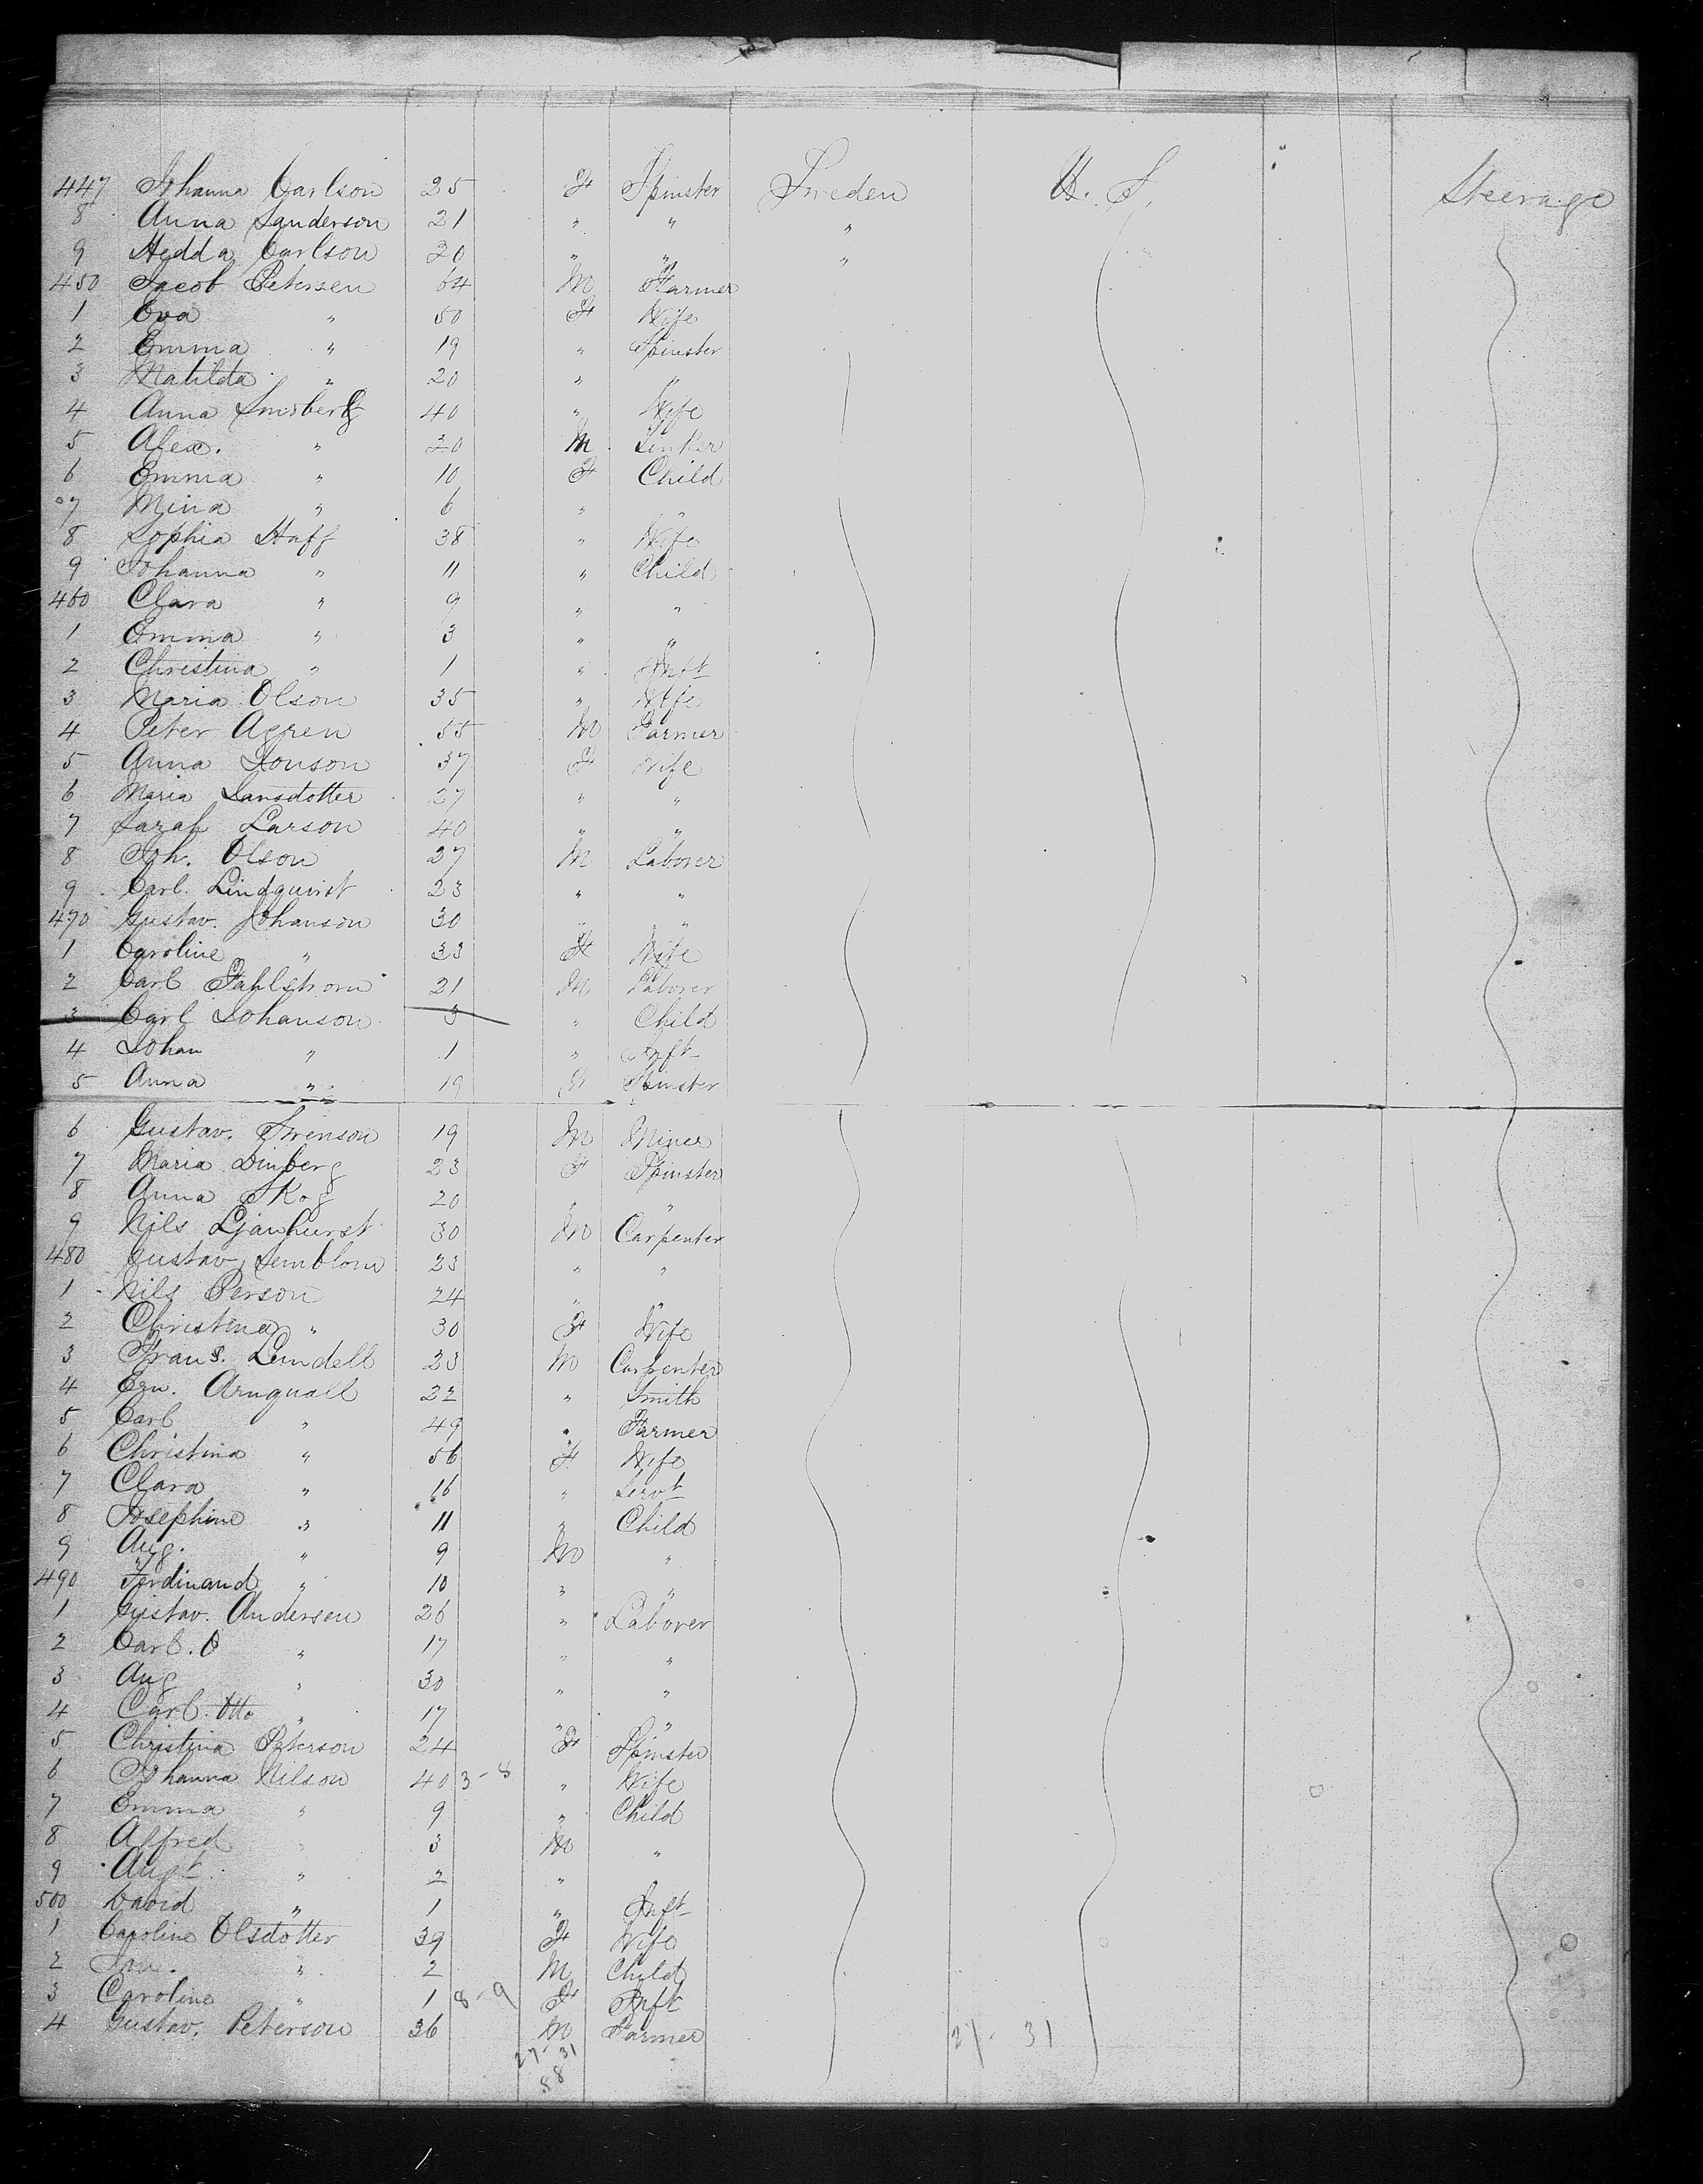 447 Johanna Carlson 25 F Spinster Sweden U. S. Steerage
8 Anna Sanderson 21 " " "
9 Hedda Carlson 20 " " "
450 Jacob Petersen 64 M Farmer
1 Eva " 50 F Wife
2 Emma " 19 " Spinster
3 Matilda " 20 " "
4 Anna 40 " Wife
5 Alex. " M
6 Emma " 10 F Child
7 Mina " 6 " "
8 Sophia Haff 38 " Wife
9 Johanna " 11 " Child
460 Clara " 9 " "
1 Emma " 3 " "
2 Christina " 1 " Inft
3 Maria Olson 35 " Wife
4 Peter Agren 55 M Farmer
5 Anna Jonson 37 F Wife
6 Maria Lansdotter 27 " "
7 Sarah Larson 40 " "
8 Joh. Olson 27 M Laborer
9 Carl. Lindquist 23 " "
470 Gustav. Johanson 30 " "
1 Caroline " 33 F Wife
2 Carl Fahlstrom 21 M Laborer
3 Carl Johanson 3 " Child
4 Johan " 1 " Inft
5 Anna " 19 F Spinster
6 Gustav. Swenson 19 M Miner
7 Maria 23 F Spinster
8 Anna Skog 20 " "
9 Nils 30 M Carpenter
480 Gustav 23 " "
1 Nils Person 24 " "
2 Christina " 30 F Wife
3 Frans. Lundell 23 M Carpenter
4 Arnquall 22 " Smith
5 Carl " 49 " Farmer
6 Christina " 56 F Wife
7 Clara " 16 " Servt
8 Josephine " 11 " Child
9 Aug. " 9 M "
490 Ferdinand " 10 " "
1 Gustav. Andersen 26 " Laborer
2 Carl. O " 17 " "
3 Aug " 30 " "
4 Carl. Otto " 17 " "
5 Christina Peterson 24 F Spinster
6 Johanna Nilson 40 3-8 " Wife
7 Emma " 9 " Child
8 Alfred " 3 M "
9 Augt. " 2 "
500 David " 1 " Inft
1 Caroline Olsdotter 39 F Wife
2 " 2 M Child
3 Caroline " 1 8-9 F Inft
4 Gustav. Peterson 36 M Farmer
27-31 27-31
58